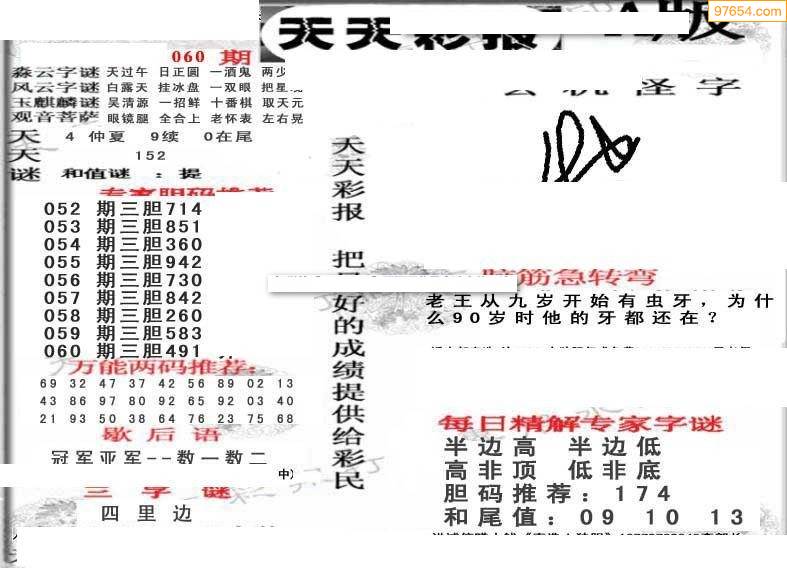 97654.com
天天彩报
A版
060 期
淼云字谜 天过午 日正圆 一酒鬼 两少
风云字谜 白露天 挂冰盘 一双眼 把星
玉麒麟谜 吴清源 一招鲜 十番棋 取天元
观音菩萨 眼镜腿 全合上 老怀表 左右晃
天 4 仲夏 9续 0在尾
天 152
谜 和值谜 ：提
专家胆码推荐
052 期三胆714
053 期三胆851
054 期三胆360
055 期三胆942
056 期三胆730
057 期三胆842
058 期三胆260
059 期三胆583
060 期三胆491
万能两码推荐：
69 32 47 37 42 56 89 02 13
43 86 97 80 92 65 92 03 40
21 93 50 38 64 76 23 75 68
歇后语
冠军亚军--数一数二
中）
三字谜
四里边
天天彩报 把最好的成绩提供给彩民
玄机怪字
脑筋急转弯
老王从九岁开始有虫牙，为什
么90岁时他的牙都还在？
每日精解专家字谜
半边高 半边低
高非顶 低非底
胆码推荐：174
和尾值：09 10 13